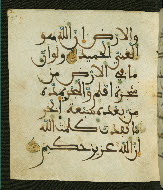 والارض ان الله هو
الغني الحميد ولو ان
ما في الارض من
شجرة اقلم والبحر يمده
من بعده سبعة ابحر
ما نفدت كلمت الله
ان الله عزيز حكيم